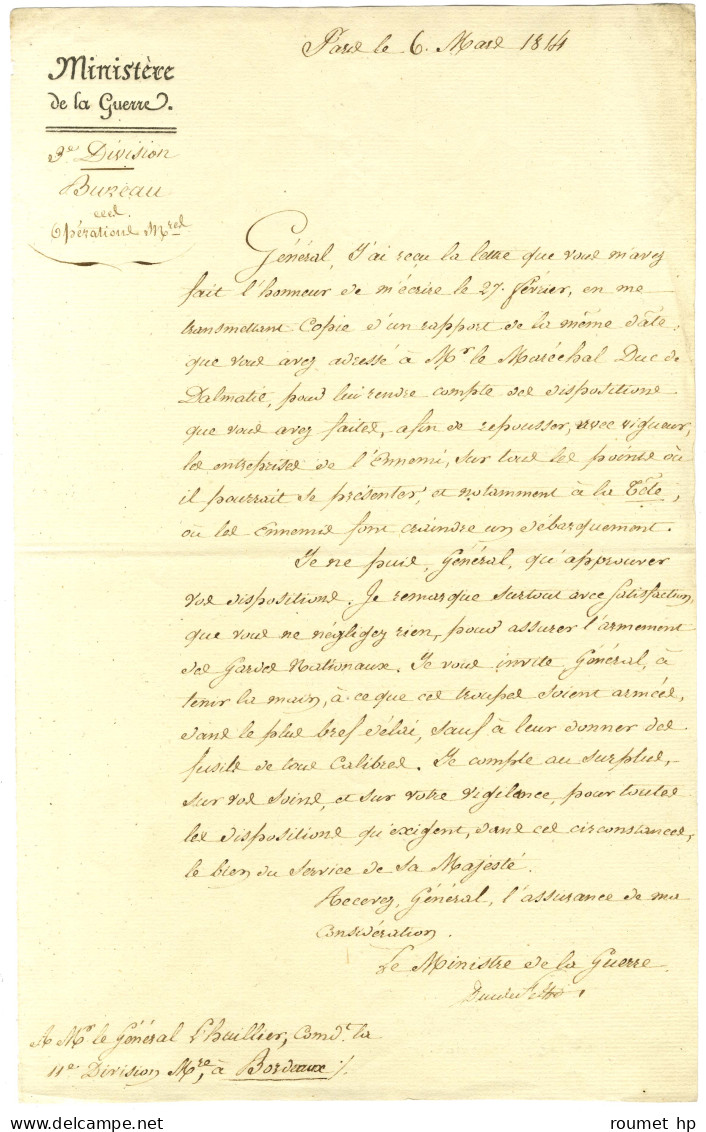 Paris le 6. Mars 1814
Ministère
de la Guerre.
3e Division
Bureau
des
Opérations Mres
Général, J'ai reçu la lettre que vous m'avez
fait l'honneur de m'écrire le 27. février, en me
transmettant Copie d'un rapport de la même date,
que vous avez adressé à Mr le Maréchal Duc de
Dalmatie, pour lui rendre compte des dispositions
que vous avez faites, afin de repousser, avec vigueur,
les entreprises de l'Ennemi, sur tous les points où
il pourrait se présenter, et notamment à la Tête,
où les Ennemis font craindre un débarquement.
Je ne puis, Général, qu'approuver
vos dispositions. Je remarque surtout avec satisfaction,
que vous ne négligez rien, pour assurer l'armement
des Gardes Nationaux. Je vous invite Général, à
tenir la main, à ce que ces troupes soient armées,
dans le plus bref délai, sauf à leur donner des
fusils de tous Calibres. Je compte au surplus,
sur vos soins, et sur votre vigilance, pour toutes
les dispositions qu'exigent, dans ces circonstances,
le bien du Service de Sa Majesté.
Recevez, Général, l'assurance de ma
Considération.
Le Ministre de la Guerre
A Mr le Général L'huillier, Comdt la
11e Division Mre, à Bordeaux ./.
roumet hp